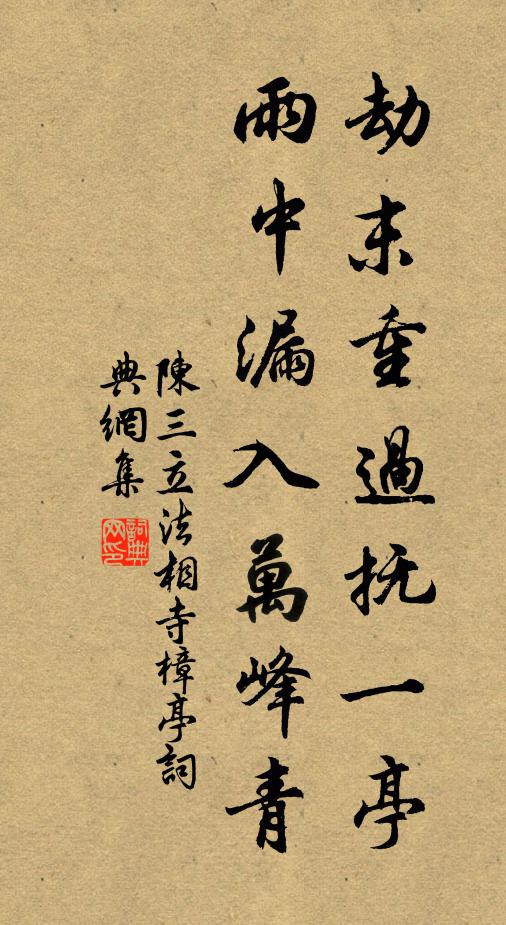 劫末重過抚一亭
雨中漏入萬峰青
陳三立法相寺樟亭詞
典網集
詞典网印